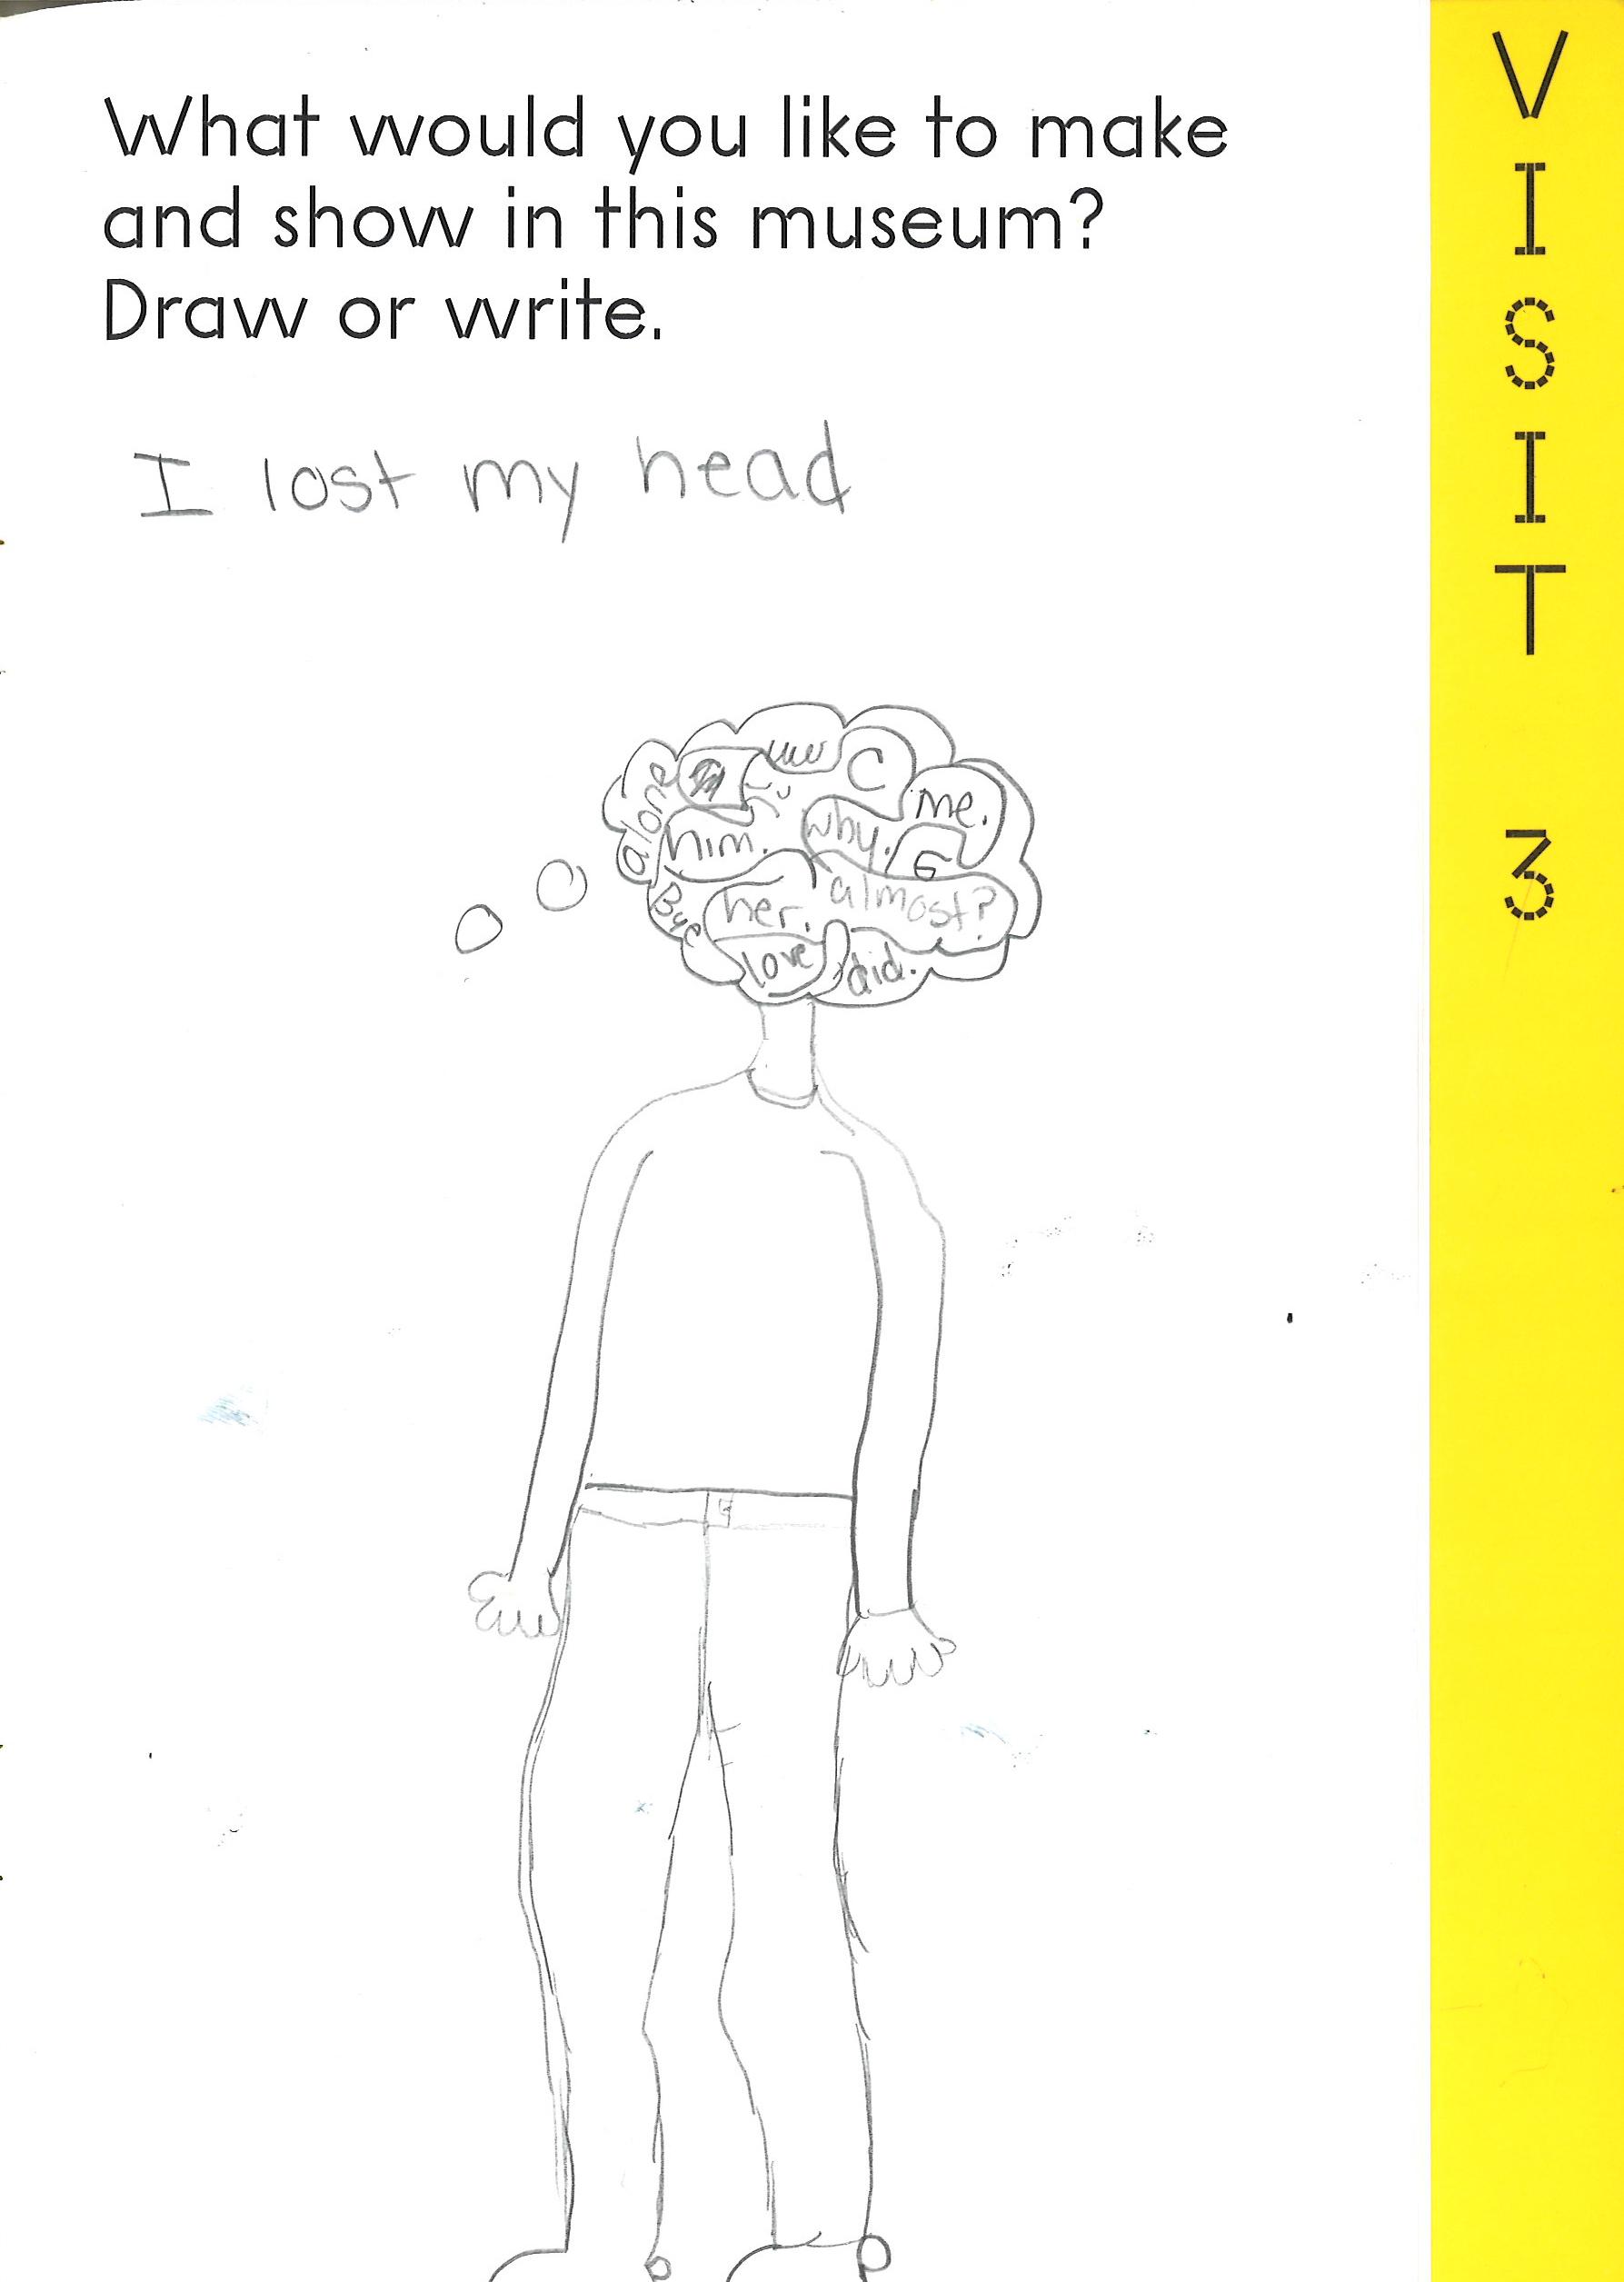 What would you like to make
and show in this museum?
Draw or write.
I lost my head
C
me.
alone
him.
why.
G
her.
almost?
Bye
love
did.
VISIT 3